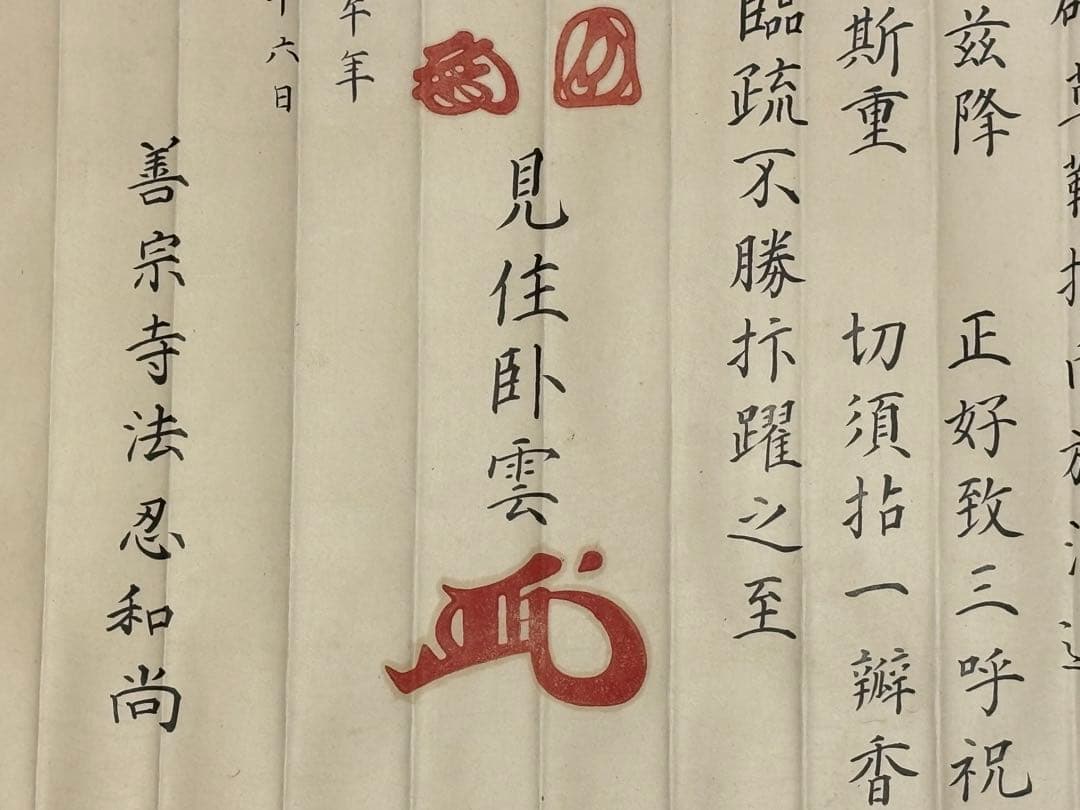 兹降 正好致三呼祝
斯重 切須拈一瓣香
臨疏不勝抃躍之至
見住卧雲
年
六日
善宗寺法忍和尚